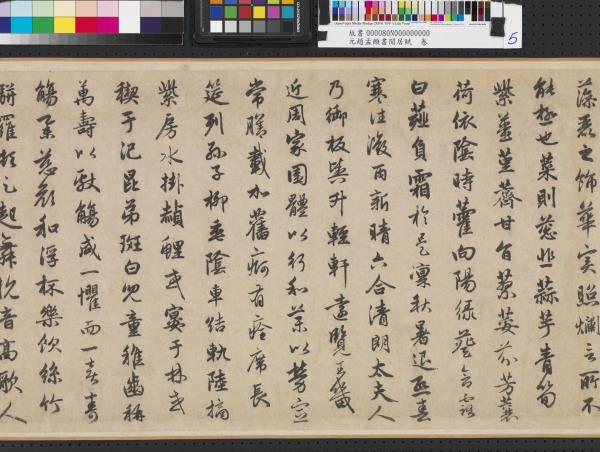 故書 000080N000000000
元趙孟頫書閒居賦 卷
5
藻麗之飾華實照爛言所不
能極也菜則葱韭蒜芋青筍
紫薑堇薺甘旨蓼荾芬芳蘘
荷依陰時藿向陽綠葵含露
白薤負霜於是凜秋暑退熙春
寒往微雨新晴六合清朗太夫人
乃御板輿升輕軒遠覽王畿
近周家園體以行和藥以勞宣
常膳載加舊痾有痊席長
筵列孫子柳垂陰車結軌陸摘
紫房水掛赬鯉或宴于林或
禊于汜昆弟斑白兒童稚齒稱
萬壽以獻觴咸一懼而一喜壽
觴舉慈顏和浮杯樂飲絲竹
駢羅頓足起舞抗音高歌人